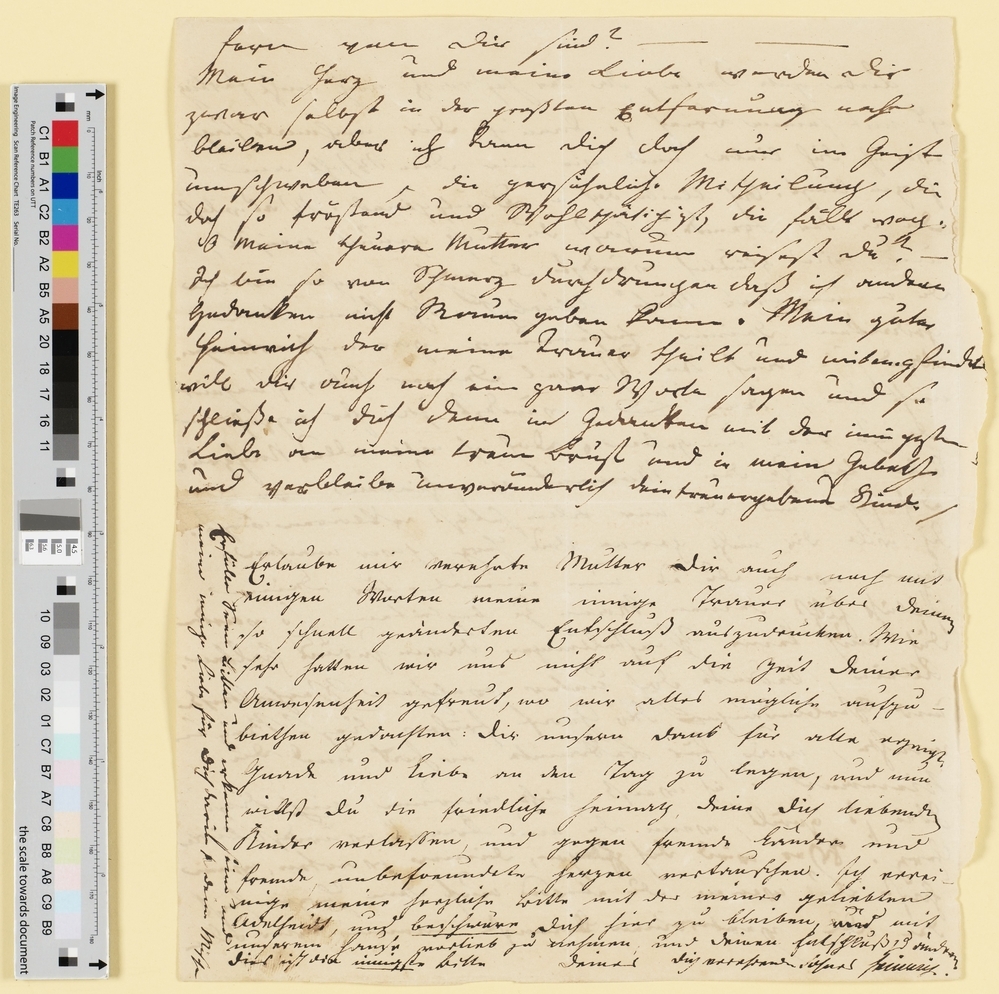 fern von Dir sind? —— ——
Mein Herz und meine Liebe werden Dir
zwar selbst in der größten Entfernung nahe
bleiben, aber ich kann dich doch nur im Geist
umschweben, die persöhnliche Mittheilung, die
doch so tröstend und Wohlthätig ist, die fällt weg.
O meine theuere Mutter warum reisest du? —
Ich bin so von Schmerz durchdrungen daß ich andern
Gedanken nicht Raum geben kann. Mein guter
Heinrich der meine Trauer theilt und mitempfindet
will dir auch noch ein paar Worte sagen und so
schließe ich dich denn in Gedanken mit der innigsten
Liebe an meine treue Brust und in mein Gebeth
und verbleibe unveränderlich dein treuergebenes Kind.
Erlaube mir verehrte Mutter Dir auch noch mit
einigen Worten meine innige Trauer über deinen
so schnell geänderten Entschluß auszudrücken. Wie
sehr hatten wir uns nicht auf die Zeit deiner
Anwesenheit gefreut, wo wir alles mögliche aufzu-
biethen gedachten: dir unsern Dank für alle erzeigte
Gnade und Liebe an den Tag zu legen, und nun
willst du die friedliche Heimath, deine dich liebenden
Kinder verlassen, und gegen fremde Länder und
fremde, unbefreundete Herzen vertauschen. Ich verei-
nige meine herzliche Bitte mit der meiner geliebten
Adelheidt, und beschwöre dich hier zu bleiben, und mit
unserem Hause vorlieb zu nehmen, und deinen Entschluß zu ändern
dies ist die innigste Bitte deines dich verehrenden Sohnes Heinrich.
Erfülle Bitten und
meine innige Liebe für Dich
Image Engineering Scan Reference Chart TE263 Serial No.
Patch Reference numbers on UTT
C1 B1 A1 C2 B2 A2 B5 A5 20 18 17 16 11
10 09 03 02 01 C7 B7 A7 C8 B8 A8 C9 B9
mm
inch
the scale towards document